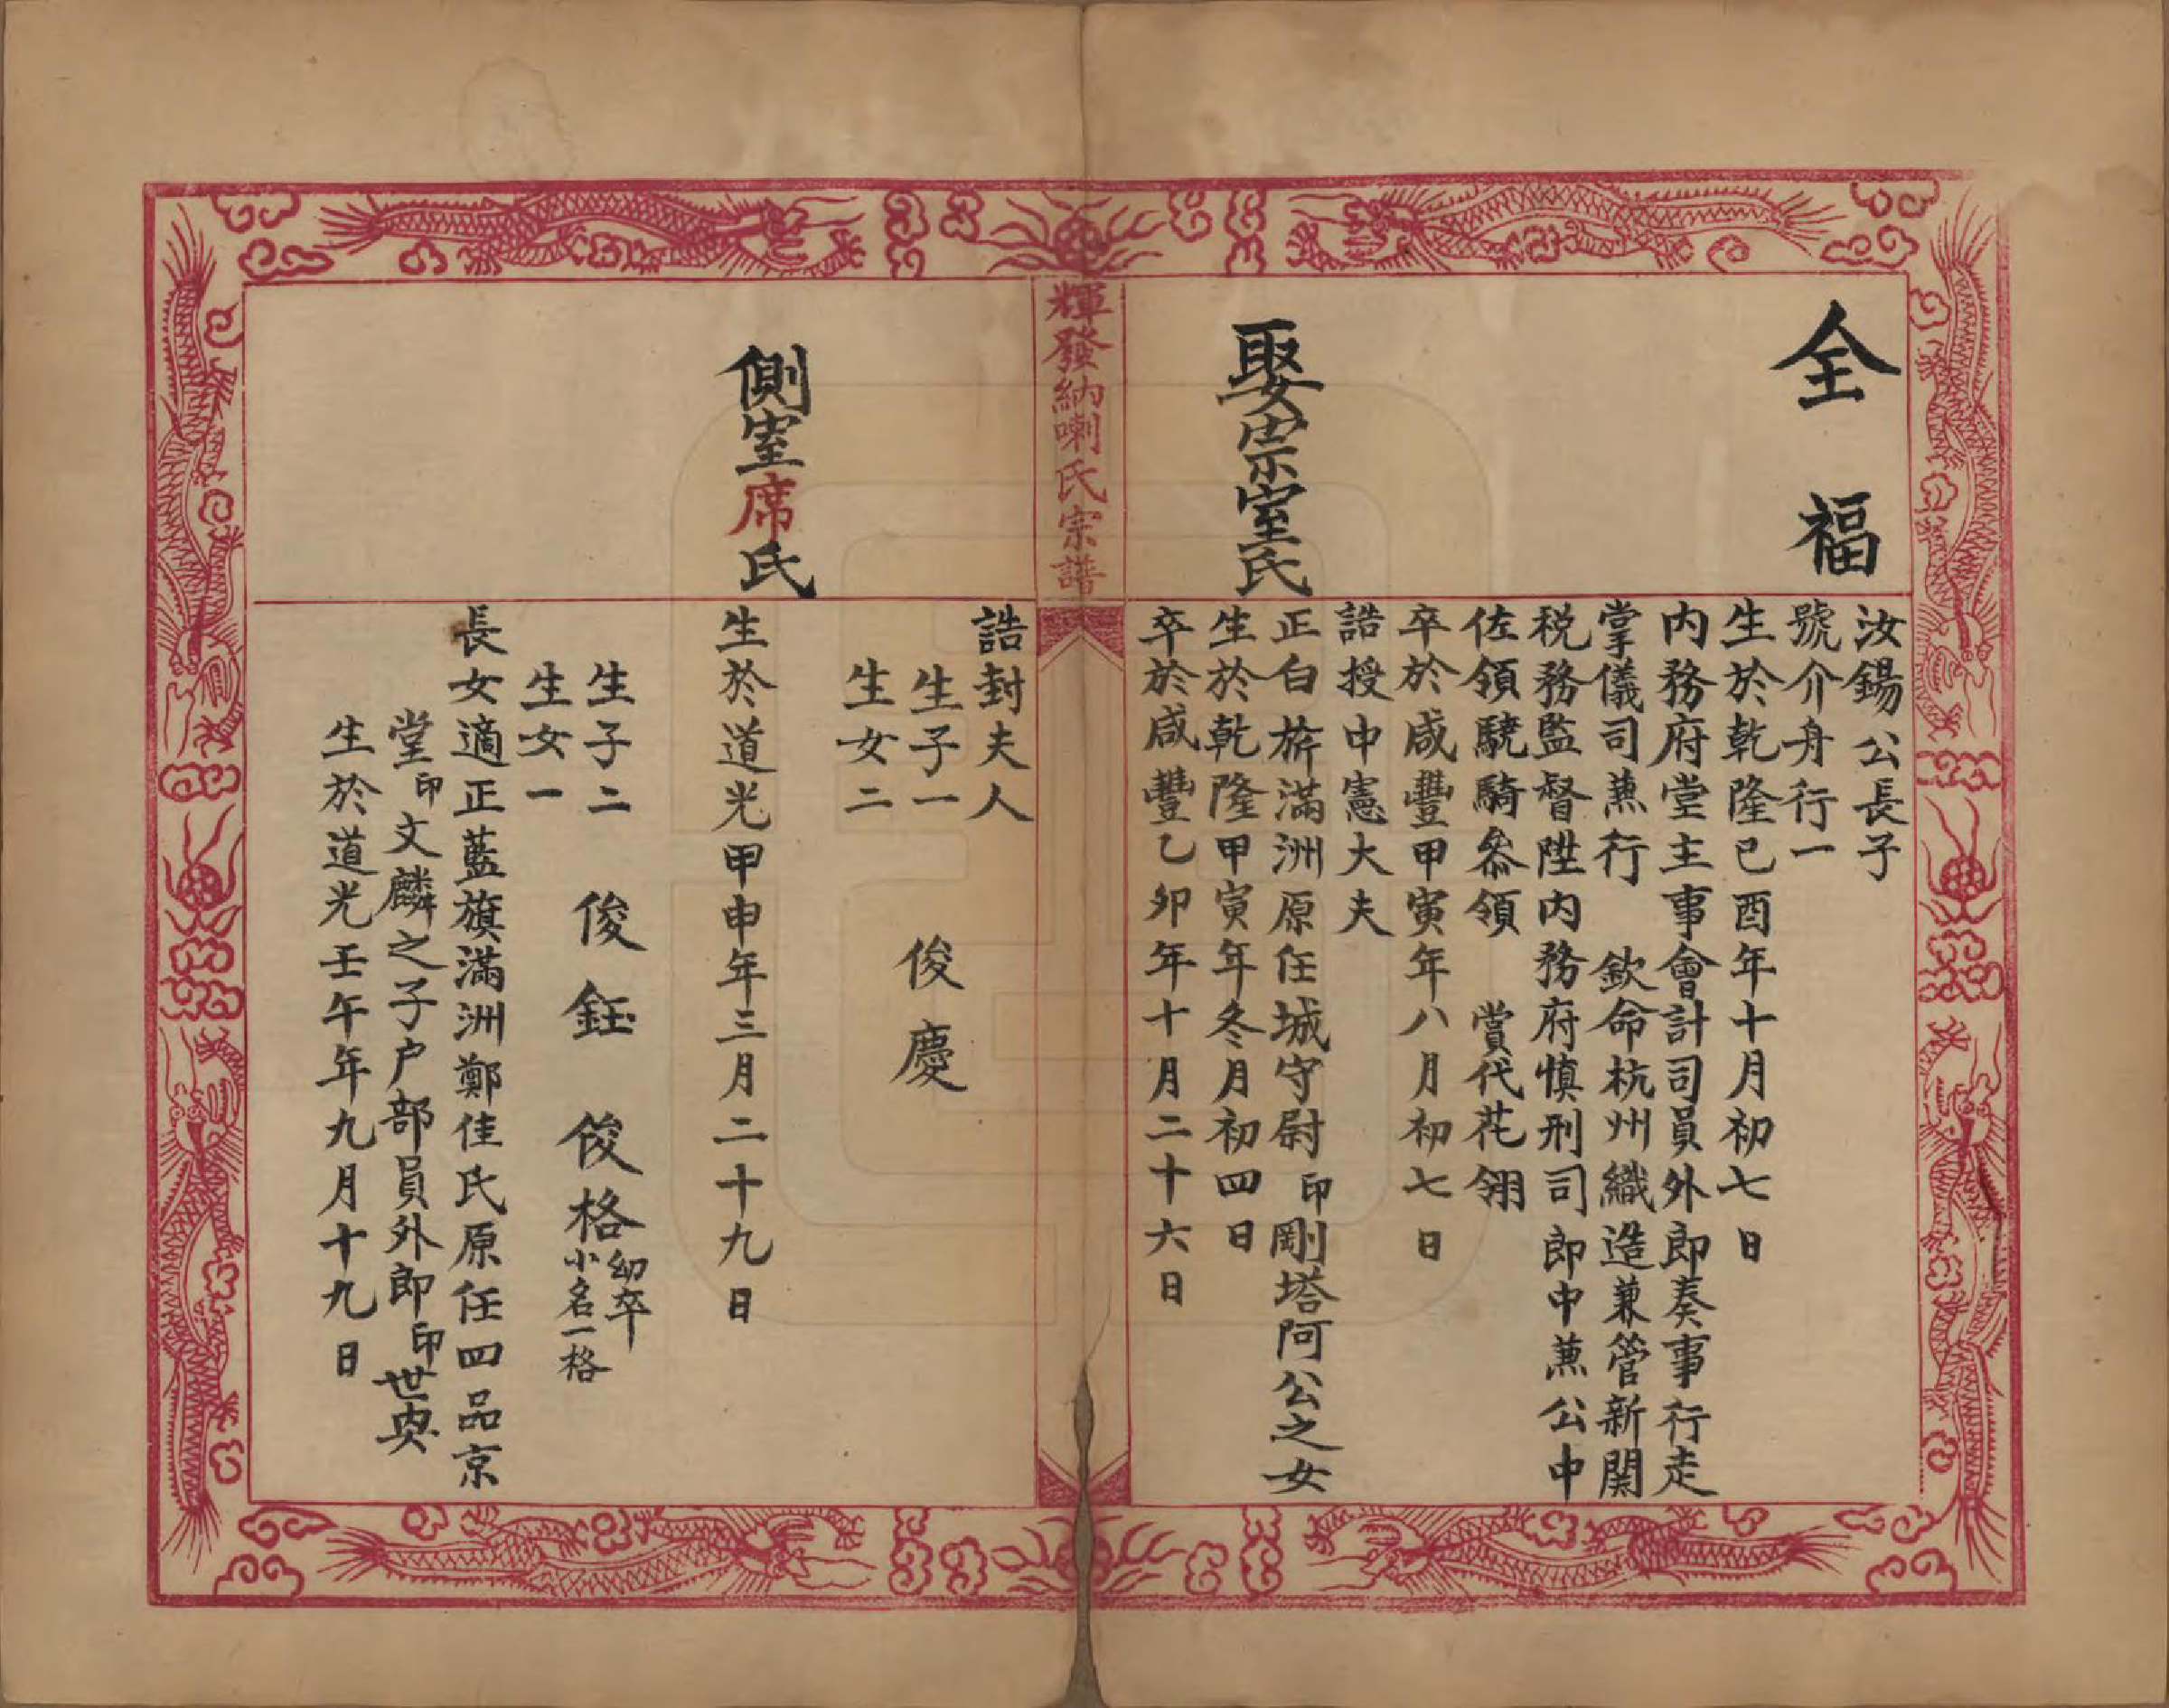 全福
汝錫公長子
號介舟行一
生於乾隆己酉年十月初七日
內務府堂主事會計司員外郎奏事行走
掌儀司蕪行　欽命杭州織造兼管新關
稅務監督陞內務府慎刑司郎中蕪公中
佐領驍騎叅領　賞代花翎
卒於咸豐甲寅年八月初七日
誥授中憲大夫
娶宗室氏
正白旂滿洲原任城守尉印剛塔阿公之女
生於乾隆甲寅年冬月初四日
卒於咸豐乙卯年十月二十六日
輝發納喇氏宗譜
誥封夫人
生子一　俊慶
生女二
側室席氏
生於道光甲申年三月二十九日
生子二　俊鈺　俊格 幼卒 小名一格
生女一
長女適正藍旗滿洲鄭佳氏原任四品京
堂印文麟之子戶部員外郎印世㒞
生於道光壬午年九月十九日